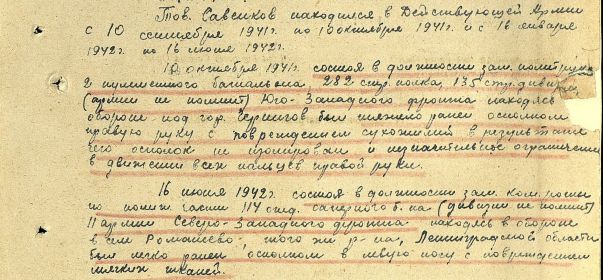 Тов. Савенков находился в Действующей Армии
с 10 сентября 1941г. по 10 октября 1941г. и с 16 января
1942г. по 16 июня 1942г.
10 октября 1941г. состоя в должности зам. политрука
2 пулеметного батальона, 282 стр. полка, 135 стр. дивизии
(армии не помнит) Юго-Западного фронта находясь
обороне под гор. Чернигов был тяжело ранен осколком
правую руку с повреждением сухожилий в результате
чего осколок не изолирован и незначительное ограничение
в движении всех пальцев правой руки.
16 июня 1942г. состоя в должности зам. ком. роты
по полит. части 114 отд. саперного б-на (дивизии не помнит)
11 армии Северо-Западного фронта находясь в обороне
в селе Рамашево, того же р-на, Ленинградской области
был легко ранен осколком в левую ногу с повреждением
мягких тканей.